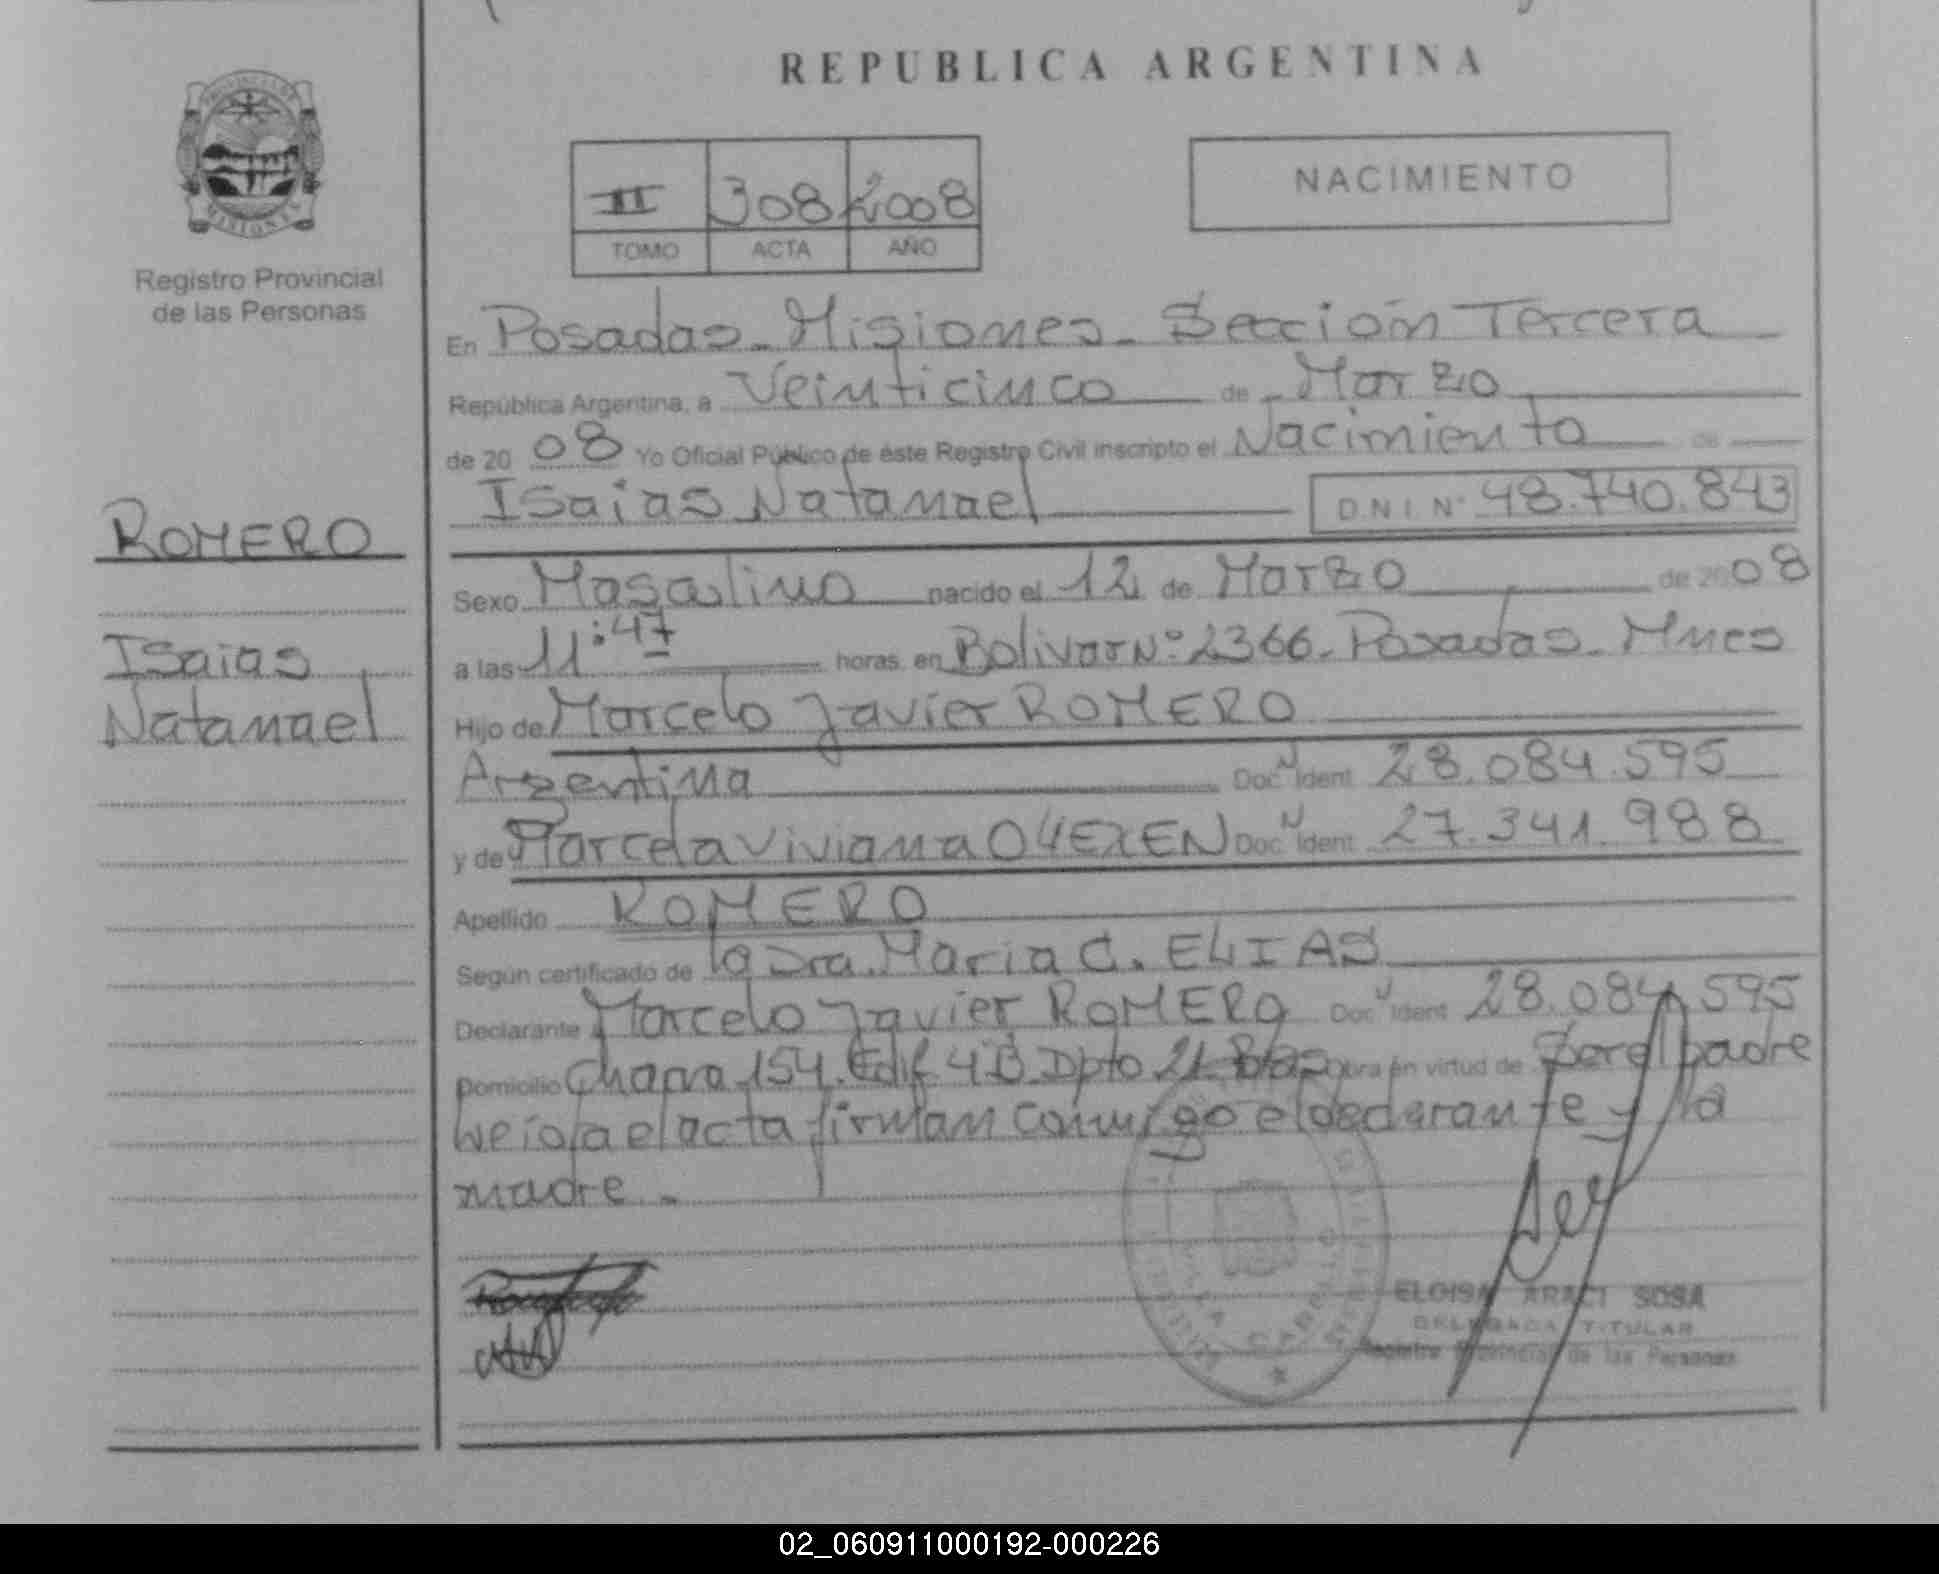 REPUBLICA ARGENTINA
II 308 2008
TOMO ACTA AÑO
NACIMIENTO
Registro Provincial
de las Personas
ROMERO
Isaias
Natanael
En Posadas - Misiones - Sección Tercera
República Argentina, a Veinticinco de Marzo
de 20 08 Yo Oficial Público de éste Registro Civil inscripto el Nacimiento de
Isaias Natanael D N I N° 48.740.843
Sexo Masculino nacido el 12 de Marzo de 2008
a las 11:47 horas. en Bolivar N° 2366 - Posadas - Mnes
Hijo de Marcelo Javier ROMERO
Argentina Doc Ident 28.084.595
y de Marcela Viviana Doc Ident 27.341.988
Apellido ROMERO
Según certificado de la Dra. Maria C. ELIAS
Declarante Marcelo Javier ROMERO Doc Ident 28.084.595
Domicilio Chacra 154. Edif 4B. Dpto 21 obra en virtud de Ser el padre
leída el acta firman conmigo el declarante y la
madre.-
VILLA CABELLO
ELOISA ARACI SOSA
DELEGADA TITULAR
Registro Provincial de las Personas
02_060911000192-000226